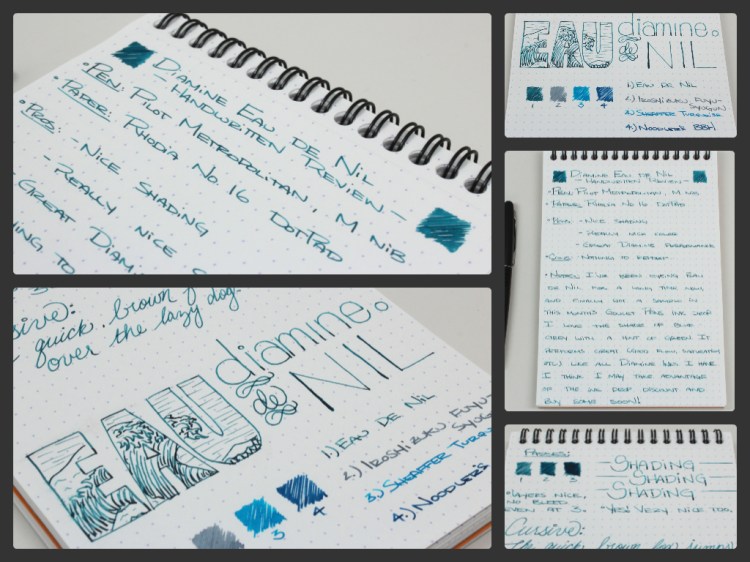 Diamine Eau de Nil
- Handwritten Review -
• Pen: Pilot Metropolitan, M nib
• Paper: Rhodia No. 16 DotPad
• Pros: - Nice shading
- Really nice
Great Diam
ing to
diamine
EAU de NIL
1.) Eau de Nil
2.) Iroshizuku Fuyu-
Syogun
3.) Sheaffer Turquoise
4.) Noodler's BBH
1 2 3 4
Diamine Eau de Nil
- Handwritten Review -
• Pen: Pilot Metropolitan, M nib
• Paper: Rhodia No. 16 DotPad
• Pros: - Nice shading
- Really nice color
- Great Diamine
• Cons: - Nothing to
• Notes: I've been eyeing Eau
de Nil for a long time now,
and finally got a sample in
this month's Goulet Pens Ink Drop
I love the shade of blue
grey with a hint of green. It
performs great (good flow, saturation
etc.) like all Diamine inks I have.
I think I may take advantage
of the ink drop discount and
buy some soon!!
ursive:
e quick, brown f
over the lazy dog.
diamine
EAU de NIL
1.) Eau de Nil
2.) Iroshizuku Fuyu-
Syogun
3.) Sheaffer Turq
4.) Noodler's
3 4
Passes:
1 2 3
• Layers nice,
no bleed
even at 3.
Shading
Shading
Shading
• Yes! Very nice too.
Cursive:
the quick, brown fox jumps